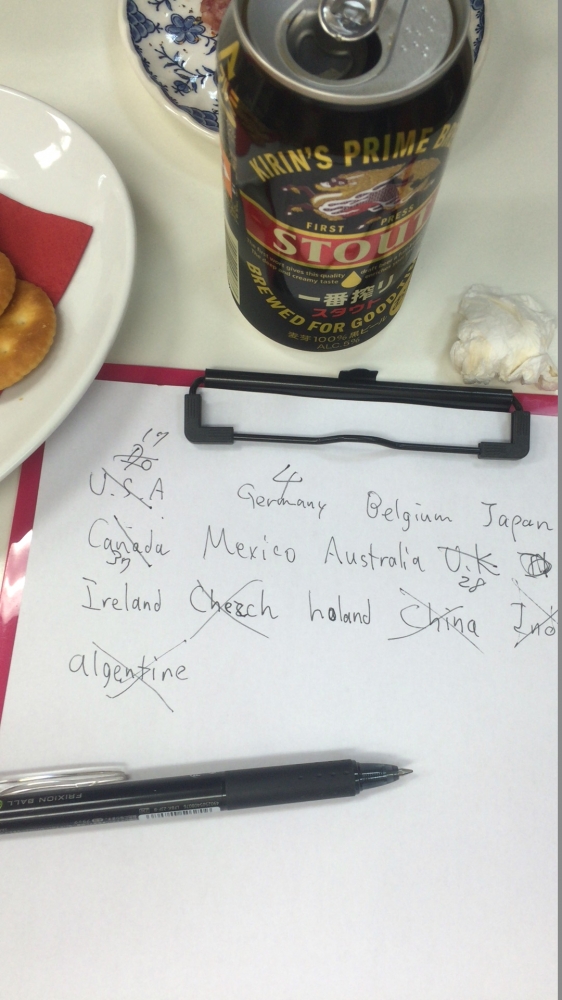 KIRIN'S PRIME
FIRST PRESS
STOUT
gives this quality
and creamy taste
一番搾り
スタウト
BREWED FOR GOOD
麦芽100%
ALC.5%
17
20
U.S.A Germany 4 Belgium Japan
Canada Mexico Australia U.K
37 28
Ireland Chezch holand China
algentine
FRIXION BALL